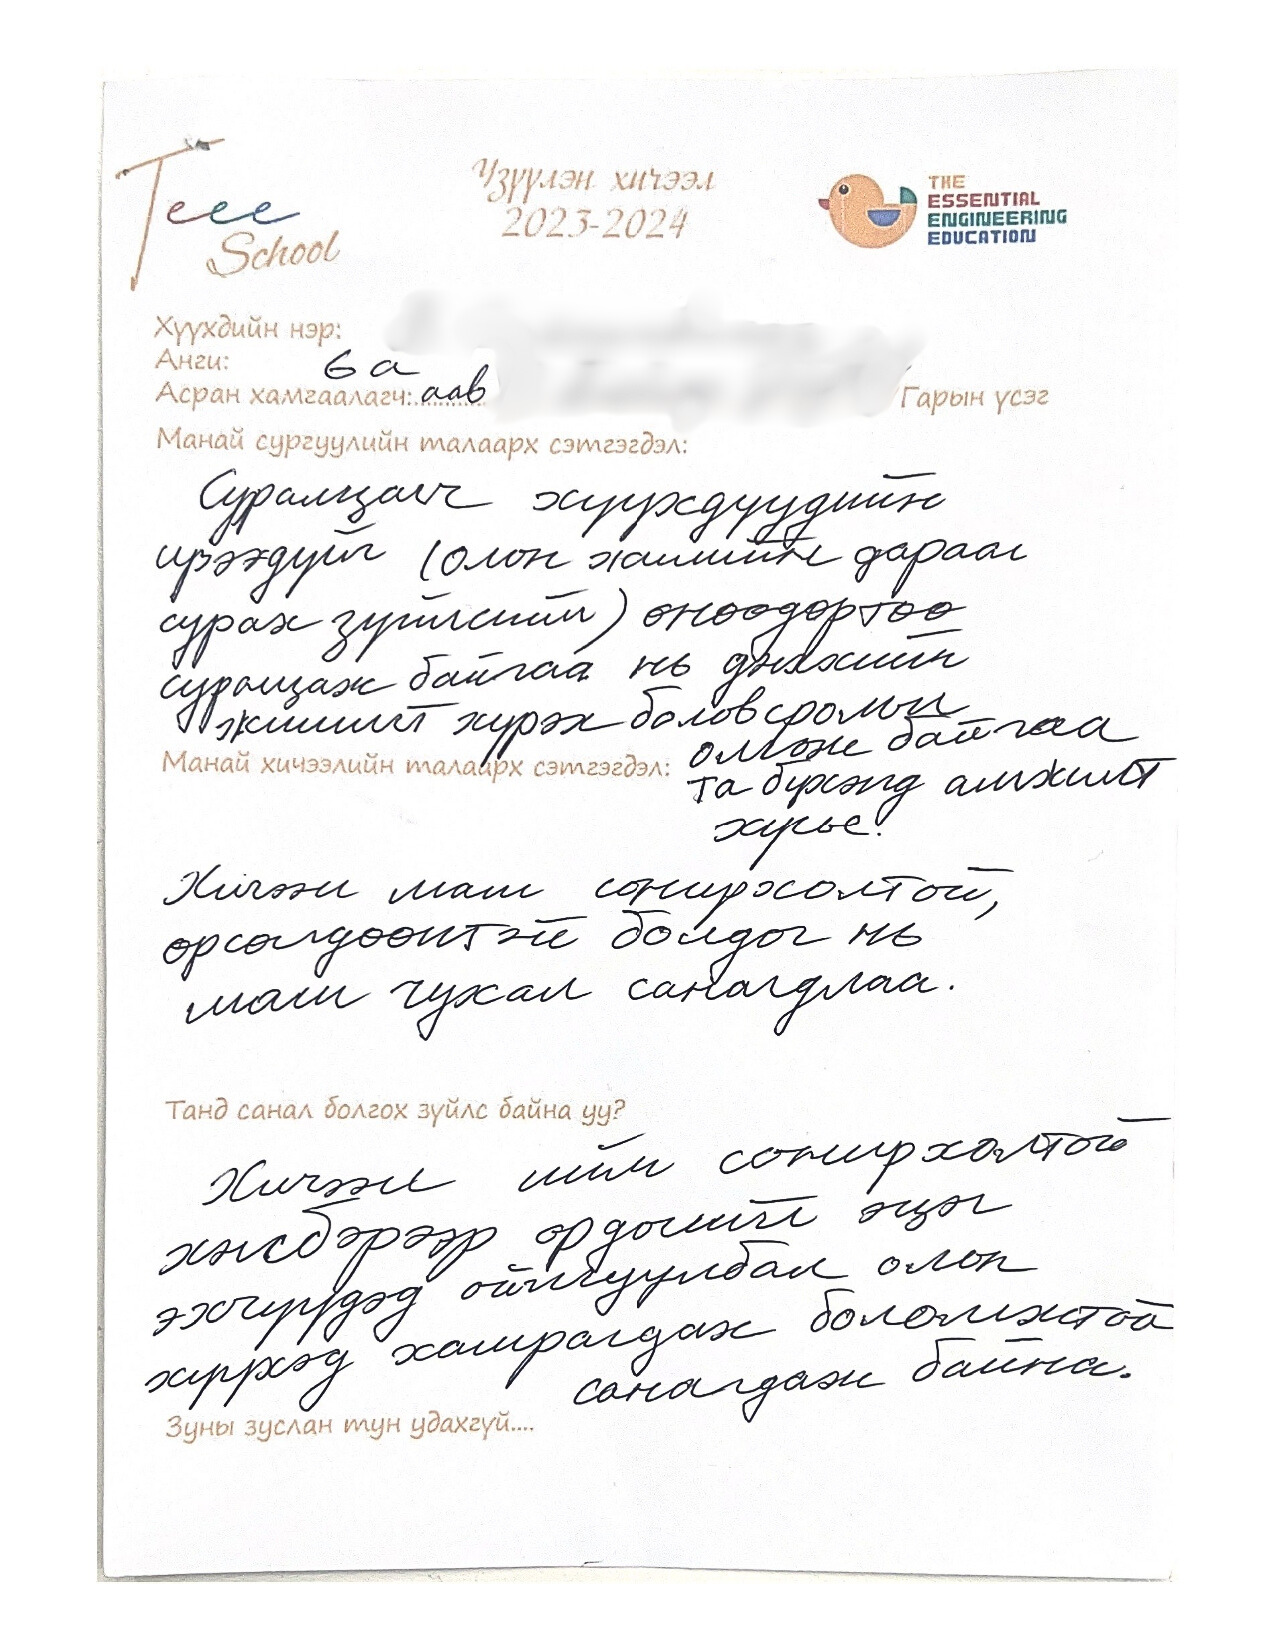 Teee
School
Үзүүлэн хичээл
2023-2024
THE
ESSENTIAL
ENGINEERING
EDUCATION
Хүүхдийн нэр:
Анги: 6а
Асран хамгаалагч:.......... аав Гарын үсэг
Манай сургуулийн талаарх сэтгэгдэл:
Суралцагч хүүхдүүдийн
ирээдүйг (олон жилийн дараа
сурах зүйлсийг) өнөөдөртөө
суралцаж байгаа нь дэлхийн
жишигт хүрэх боловсролыг
олгож байгаа
та бүхэнд амжилт
хүсье.
Манай хичээлийн талаарх сэтгэгдэл:
Хичээл маш сонирхолтой,
өрсөлдөөнтэй болдог нь
маш чухал санагдлаа.
Танд санал болгох зүйлс байна уу?
Хичээл ийм сонирхолтой
хэлбэрээр ордогийг эцэг
эхчүүдэд ойлгуулбал олон
хүүхэд хамрагдах боломжтой
санагдаж байна.
Зуны зуслан тун удахгүй....